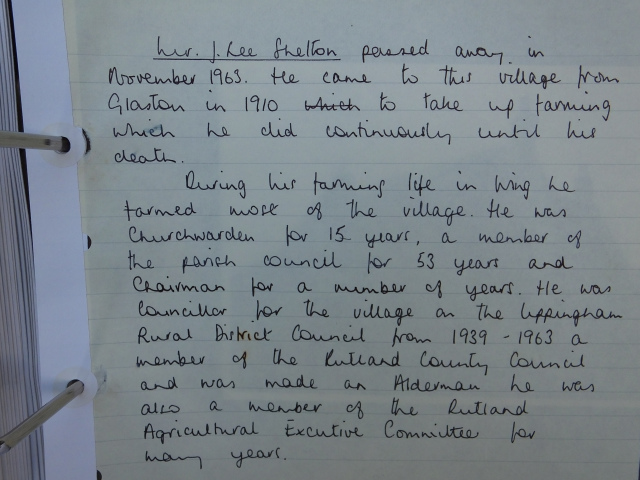 Mr. J. Lee Shelton passed away in
November 1963. He came to this village from
Glaston in 1910 which to take up farming
which he did continuously until his
death.
During his farming life in Wing he
farmed most of the village. He was
Churchwarden for 15 years, a member of
the parish council for 53 years and
Chairman for a number of years. He was
Councillor for the village on the Uppingham
Rural District Council from 1939 - 1963 a
member of the Rutland County Council
and was made an Alderman he was
also a member of the Rutland
Agricultural Excutive Committee for
many years.